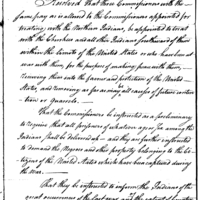 Resolved That three Commissioners with the
same pay as is allowed to the Commissioners appointed for
treating with the Northern Indians, be appointed to treat
with the Cherokees and all other Indians Southward of them
within the limits of the United States or who have been at
war with them, for the purpose of making peace with them,
receiving them into the favour and protection of the United
States, and removing as far as may be all causes of future conten-
tion or Quarrels.
That the Commissioners be instructed as a preliminary
to require that all prisoners of whatever age or sex among the
Indians shall be delivered up and they are further instructed
to demand the Negroes and other property belonging to the Ci-
tizens of the United States which have been captured during
the war.
That they be instructed to inform the Indians of the
great occurrences of the last war, and